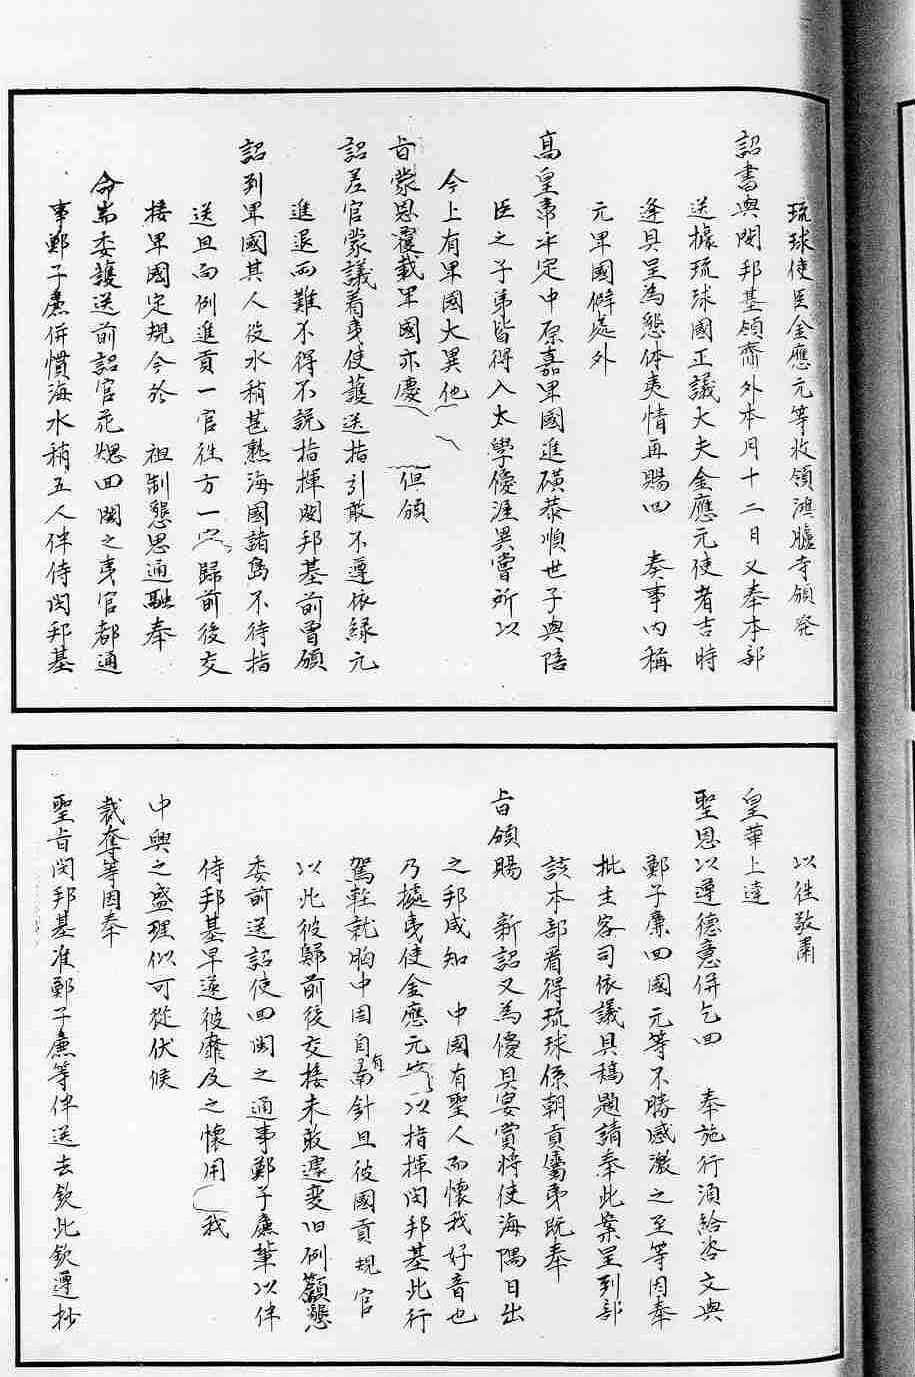 琉球使臣金應元等收領鴻臚寺頒発
詔書與閔邦基領齎外本月十二日又奉本部
送據琉球國正議大夫金應元使者吉時
逢具呈為懇体夷情再賜回　奏事内稱
元卑國僻處外
高皇帝平定中原嘉卑國進磺恭順世子與陪
臣之子弟皆得入太學優渥異嘗所以
今上有卑國大異他
旨蒙恩覆載卑國亦慶　但頒
詔差官蒙議着夷使護送指引敢不遵依緑元
進退両難不得不説指揮閔邦基前曽頒
詔到卑國其人役水稍甚熟海國諸島不待指
送且向例進貢一官徃方一　歸前後交
接卑國定規今於　祖制懇思通融奉
命耑委護送前詔官花煾回閩之夷官都通
事鄭子廉併慣海水稍五人伴侍閔邦基
以徃敬肅
皇華上達
聖恩以遵德意併乞回　奉施行湏給咨文與
鄭子廉回國元等不勝感激之至等因奉
批主客司依議具稿題請奉此案呈到部
該本部看得琉球係朝貢屬夷既奉
旨頒賜　新詔又為優具宴賞将使海隅日出
之邦咸知　中國有聖人而懷我好音也
乃據夷使金應元　以指揮閔邦基此行
駕輕就胸中固自有南針且彼國貢規官
以此彼歸前後交接未敢遽変旧例籲懇
委前送詔使回閩之通事鄭子廉輩以伴
侍邦基早遂彼靡及之懷用　我
中興之盛理似可從伏候
裁奪等因奉
聖旨閔邦基准鄭子廉等伴送去欽此欽遵抄